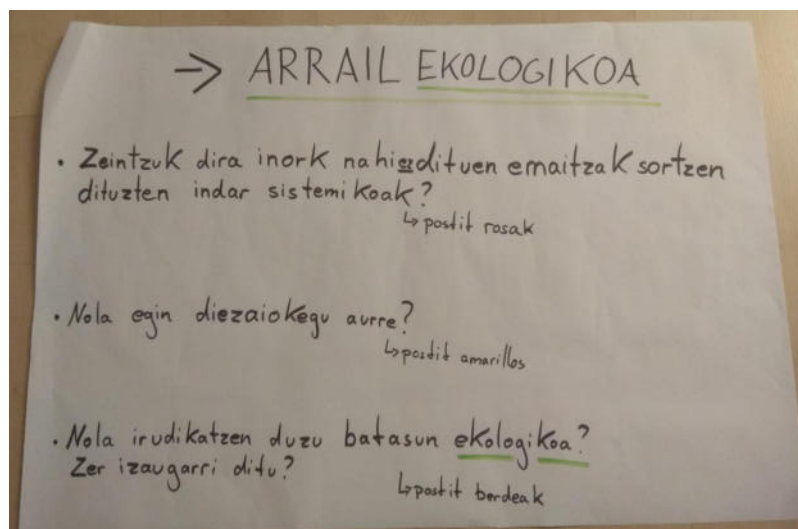 → ARRAIL EKOLOGIKOA
• Zeintzuk dira inork nahi ez dituen emaitzak sortzen
dituzten indar sistemikoak?
↳ postit rosak
• Nola egin diezaiokegu aurre?
↳ postit amarillos
• Nola irudikatzen duzu batasun ekologikoa?
Zer izaugarri ditu?
↳ postit berdeak